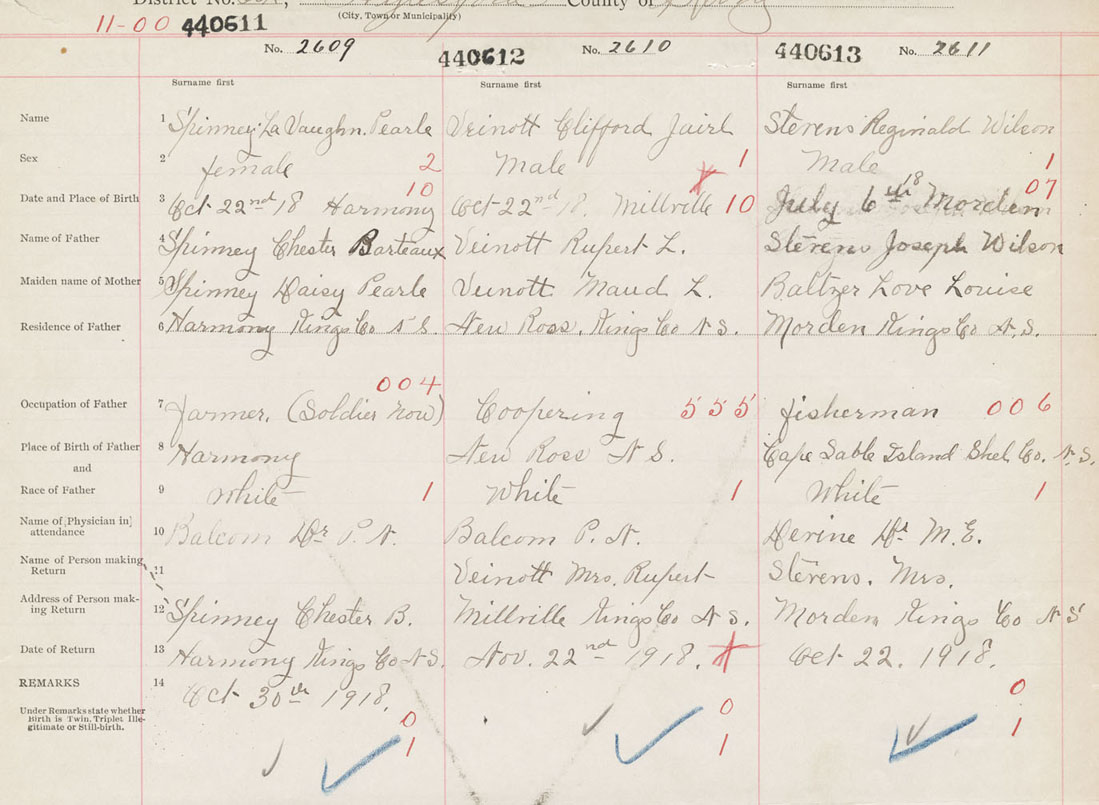 District No. County of
(City, Town or Municipality)
11-00 440611
No. 2609 440612 No. 2610 440613 No. 2611
Surname first Surname first Surname first
Name 1 Spinney La Vaughn. Pearle Veinott Clifford Jairl Stevens Reginald Wilson
Sex 2 female 2 Male 1 Male 1
10 07
Date and Place of Birth 3 Oct 22nd 18 Harmony Oct 22nd 18. Millville 10 July 6th 18 Morden
Name of Father 4 Spinney Chester Barteaux Veinott Rupert L. Stevens Joseph Wilson
Maiden name of Mother 5 Spinney Daisy Pearle Veinott Maud L. Baltzer Love Louise
Residence of Father 6 Harmony Kings Co N S. New Ross, Kings Co N S. Morden Kings Co N. S.
004
Occupation of Father 7 farmer. (Soldier now) Coopering 555 fisherman 006
Place of Birth of Father 8 Harmony New Ross N S. Cape Sable Island Shel. Co. N. S.
and
Race of Father 9 White 1 White 1 White 1
Name of [Physician in] attendance 10 Balcom Dr. P. N. Balcom P. N. Devine Dr. M. E.
Name of Person making Return 11 Veinott Mrs. Rupert Stevens. Mrs.
Address of Person making Return 12 Spinney Chester B. Millville Kings Co N S. Morden Kings Co N S
Date of Return 13 Harmony Kings Co N S. Nov. 22nd 1918. Oct 22. 1918.
REMARKS 14 Oct 30th 1918.
Under Remarks state whether
Birth is Twin, Triplet Ille-
gitimate or Still-birth.
0 0 0
1 1 1